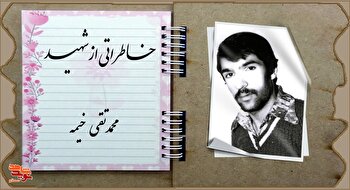 خاطراتی از شهید
محمدتقی خیمه